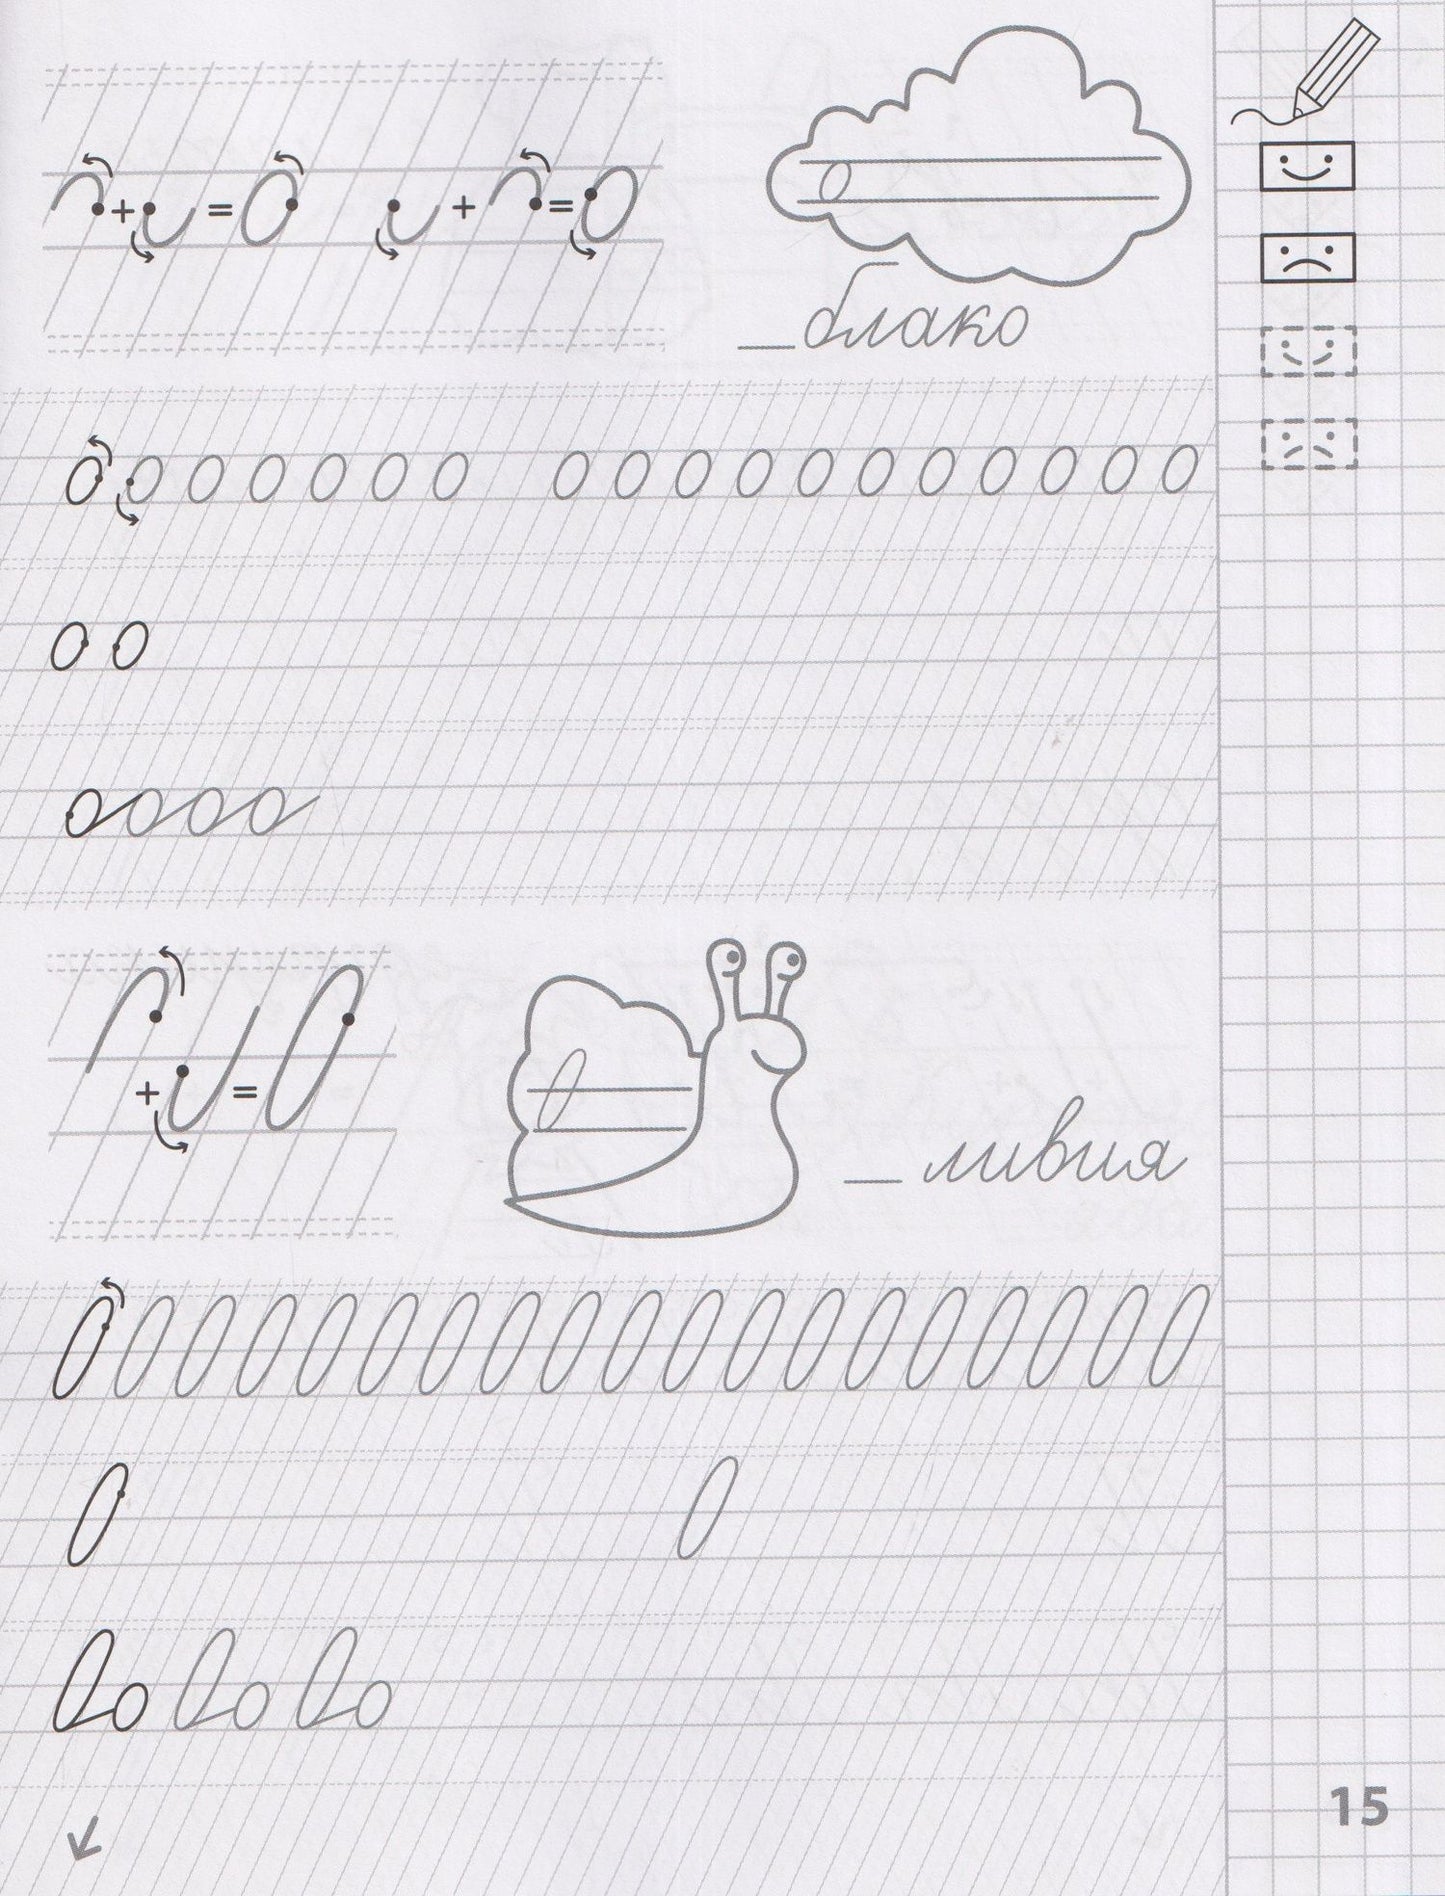 + = о + = о
о
_блако
о о о о о о о о о о о о о о о о о о
о о
оооо
+ = О
О
_ ливия
О О О О О О О О О О О О О О О О О О О
О О
Оо Оо Оо
15